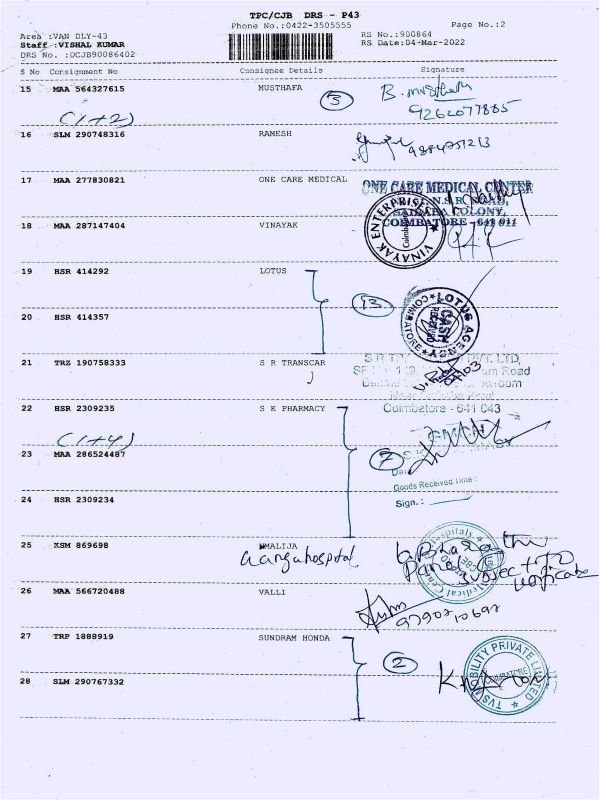 TPC/CJB DRS - P43
Phone No.:0422-3505555
Page No.:2
Area :VAN DLY-43
RS No.:900864
Staff :VISHAL KUMAR
RS Date:04-Mar-2022
DRS No. :DCJB90086402
S No Consignment No Consignee Details Signature
15 MAA 564327615 MUSTHAFA 3 B. Musthafa
(1+2) 9262077885
16 SLM 290748316 RAMESH
17 MAA 277830821 ONE CARE MEDICAL ONE CARE MEDICAL CENTER
N.S.R. ROAD,
SAIBABA COLONY,
COIMBATORE - 641 011
18 MAA 287147404 VINAYAK VINAYAK ENTERPRISE Coimbatore
19 HSR 414292 LOTUS 13
20 HSR 414357 LOTUS AGENCY COIMBATORE CASH RECEIVED
21 TRZ 190758333 S R TRANSCAR PVT. LTD,
Road
Coimbatore - 641 043
22 HSR 2309235 S K PHARMACY
(1+4)
23 MAA 286524487 7
Goods Received Time:
24 HSR 2309234 Sign. :
25 KSM 869698 MMALIJA
Ganga hospital
subject to
26 MAA 566720488 VALLI
9790710697
27 TRP 1888919 SUNDRAM HONDA 2
28 SLM 290767332 TVS MOBILITY PRIVATE LIMITED COIMBATORE